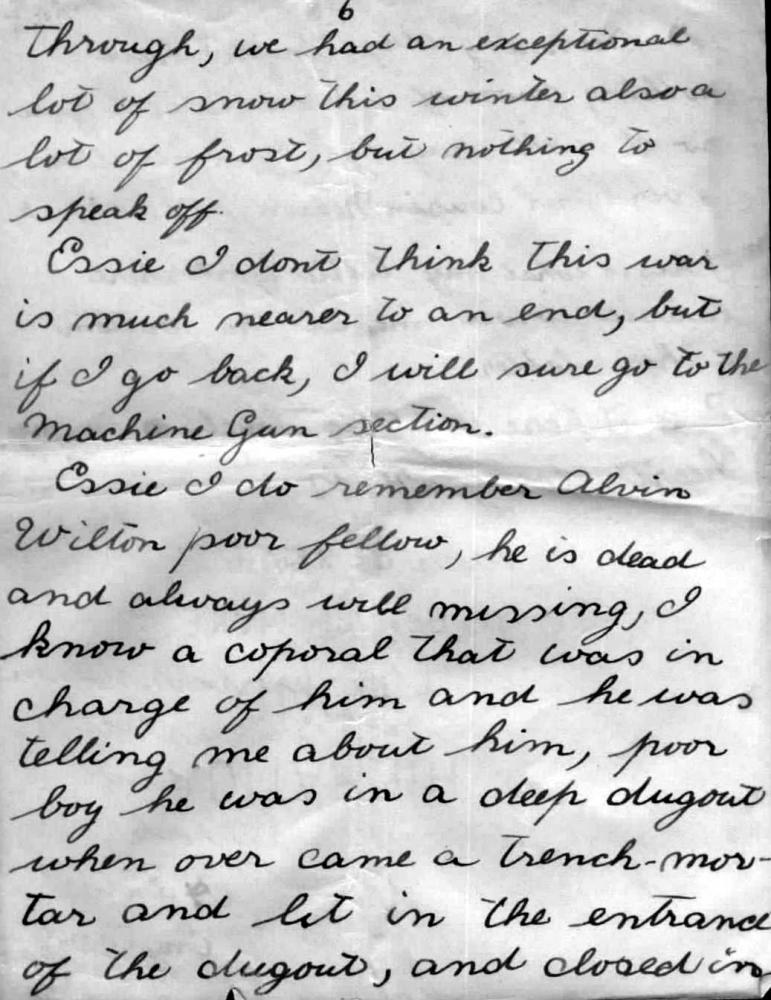 6
through, we had an exceptional
lot of snow this winter also a
lot of frost, but nothing to
speak off.
Essie I dont think this war
is much nearer to an end, but
if I go back, I will sure go to the
Machine Gun section.
Essie I do remember Alvin
Wilton poor fellow, he is dead
and always will missing, I
know a coporal that was in
charge of him and he was
telling me about him, poor
boy he was in a deep dugout
when over came a trench-mor-
tar and lit in the entrance
of the dugout, and closed in